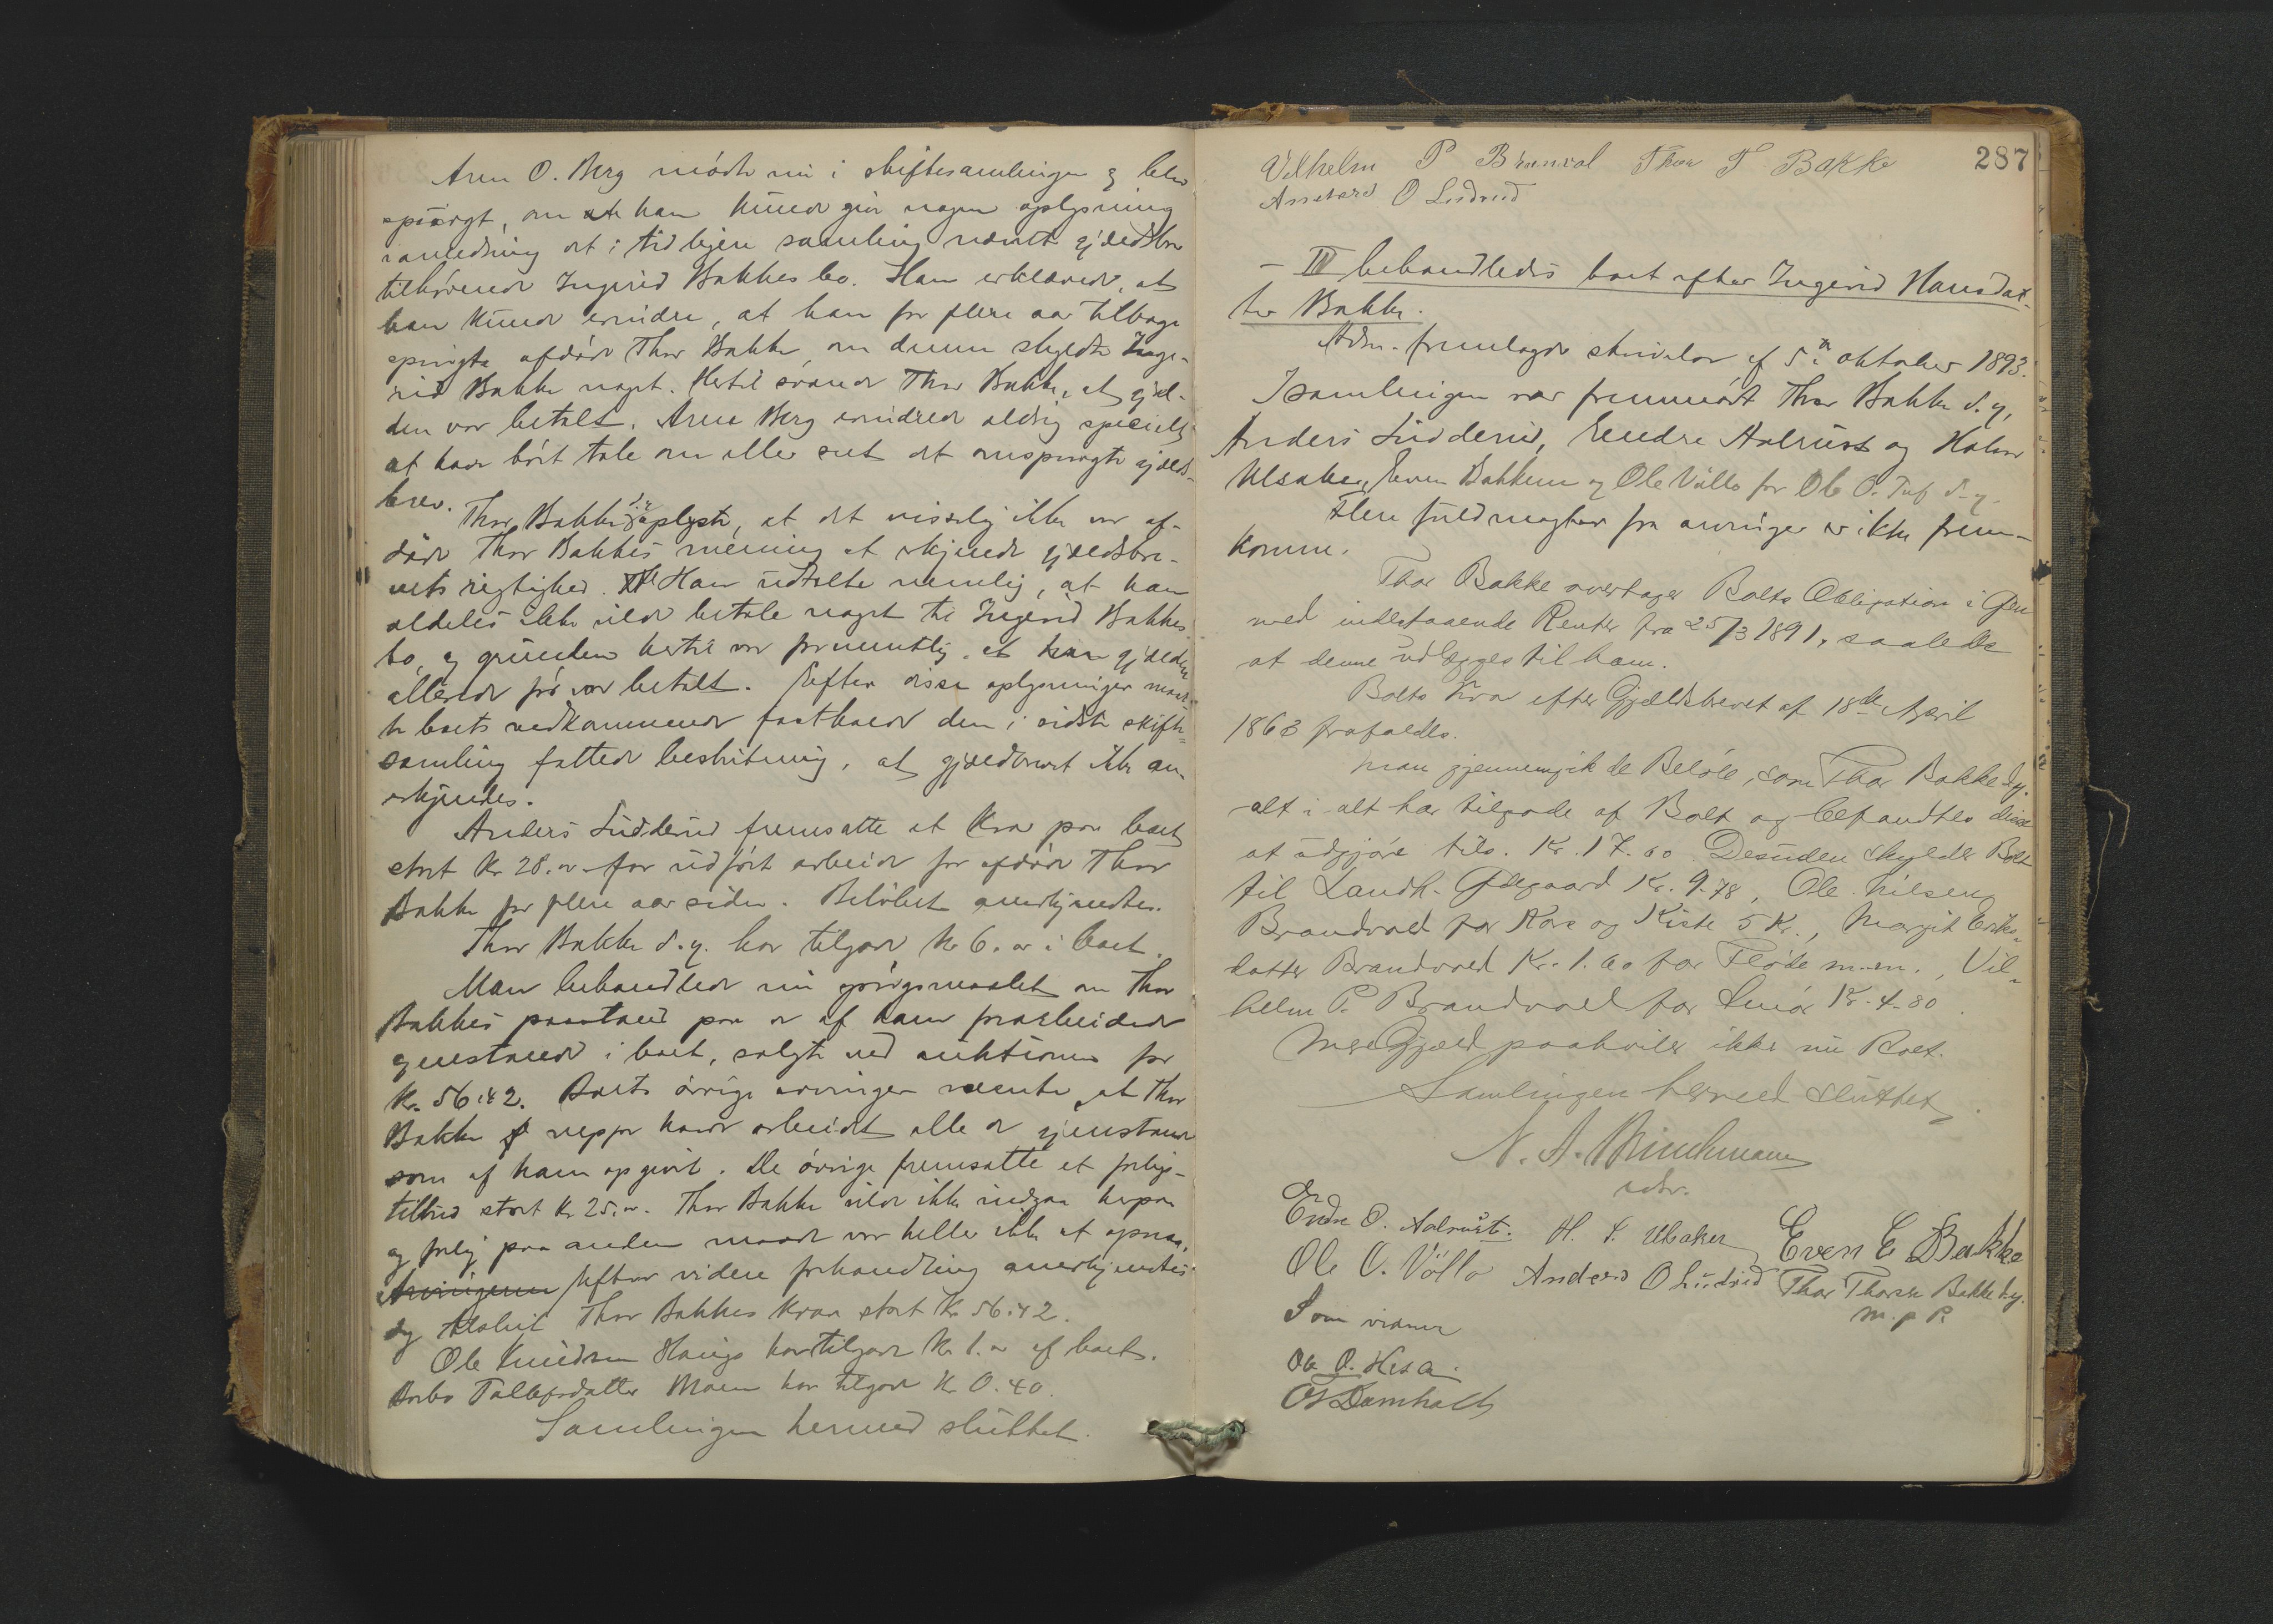 Arne O. Berg mødte nu i skiftesamlingen og blev
spurgt, om han kunde give nogen oplysning
i anledning det i tidligere samling nævnte gjældsbrev
tilhørende Ingerid Bakkes bo. Han erklærede, at
han kunde erindre, at han for flere aar tilbage
spurgte afdøde Thor Bakke, om denne skyldte Inge-
rid Bakke noget. Hertil svarede Thor Bakke, at gjæl-
den var betalt. Arne Berg erindrede aldrig specielt
at have hørt tale om eller seet det omspurgte gjælds-
brev.
Thor Bakke d.y. oplyste, at det visselig ikke var af-
døde Thor Bakkes mening at erkjende gjældsbre-
vets rigtighed. Han udtalte nemlig, at han
aldeles ikke vilde betale noget til Ingerid Bakkes
bo, og grunden hertil var formentlig, at gjælden
allerede før var betalt. Efter disse oplysninger maat-
te boets vedkommende fastholde den i sidste skifte-
samling fattede beslutning, at gjældsbrevet ikke an-
erkjendes.
Anders Luddenud fremsatte et krav paa boet
stort Kr 28.00 for udført arbeide for afdøde Thor
Bakke for flere aar siden. Beløbet anerkjendtes.
Thor Bakke d.y. har tilgode Kr 6.00 i boet.
Man behandlede nu spørgsmaalet om Thor
Bakkes paastand paa de af ham forarbeidede
gjenstande i boet, solgte ved auktionen for
Kr. 56.42. Boets øvrige arvinger mente, at Thor
Bakke neppe havde arbeidet alle de gjenstande
som af ham opgivet. De øvrige fremsatte et forligs-
tilbud stort Kr 25.00. Thor Bakke vilde ikke indgaa herpaa
og forlig paa anden maade var heller ikke at opnaa.
Arvingerne Efter videre forhandling anerkjendtes
dog tilslut Thor Bakkes krav stort Kr 56.42.
Ole Knudsen Hauge har tilgode Kr 1.00 af boet.
Barbo Tollefsdatter Moen har tilgode Kr 0.40.
Samlingen hermed sluttet.
287
Vilhelm P Brenval Thor T. Bakke
O Ludrud
– III behandledes boet efter Ingerid Hansdat-
ter Bakke.
Adm. fremlagde skrivelse af 5te oktober 1893.
I samlingen var fremmødt Thor Bakke d.y,
Anders Luddenud, Endre Aalrust og Halvor
Ulsaker, Even Bakken og Ole Völlo for Ole O. Tuf d.y.
Flere fuldmagter fra arvinger er ikke frem-
komne.
Thor Bakke overtager Boets Obligation i Gren
med indestaaende Renter fra 25/3 1891, saaledes
at denne udlægges til ham.
Boets Krav efter Gjældsbrevet af 18de April
1863 frafaldes.
Man gjennemgik de Beløb, som Thor Bakke d.y.
alt i alt har tilgode af Boet og befandtes disse
at udgjøre tils. Kr. 17.60. Desuden skylder Boet
til Landh. Ødegaard Kr. 9.78, Ole Nilsen
Brandvold for Kors og Kiste 5 Kr., Margit Eriks-
datter Brandvold Kr. 1.60 for Fløde m.m., Vil-
helm P. Brandvold for Smør Kr. 4.80.
Mere Gjæld paahviler ikke nu Boet.
Samlingen hermed sluttet.
N. A. Brinchmann
Endre O. Aalruste. H. T. Ulsaker Even E Bakke
Ole O. Völlo Anders O Ludrud Thor Thorsen Bakke d.y.
m. p. P.
Som vidner
Ole O. Hesa